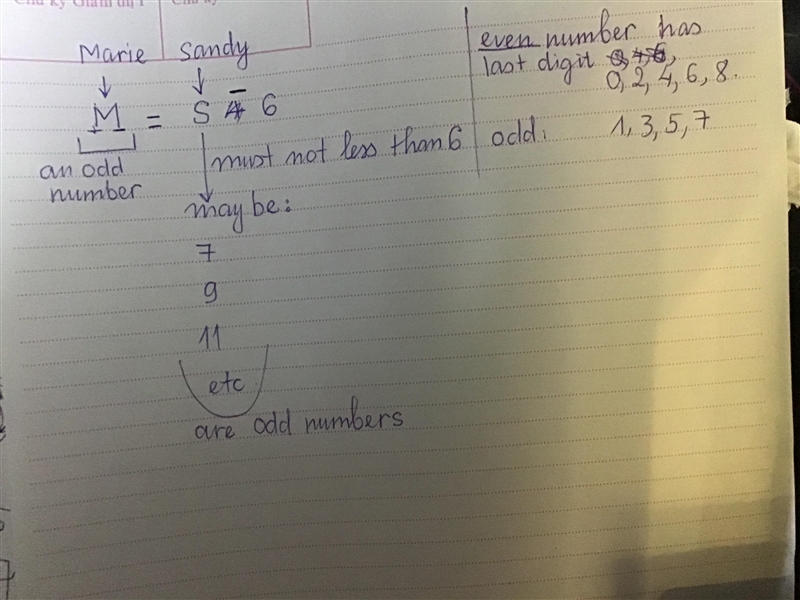 Chữ ký Giám thị 1
Chữ ký
Marie Sandy
M = S - 6
an odd
number
must not less than 6
maybe:
7
9
11
etc
are odd numbers
even number has
last digit
0, 2, 4, 6, 8.
odd: 1, 3, 5, 7